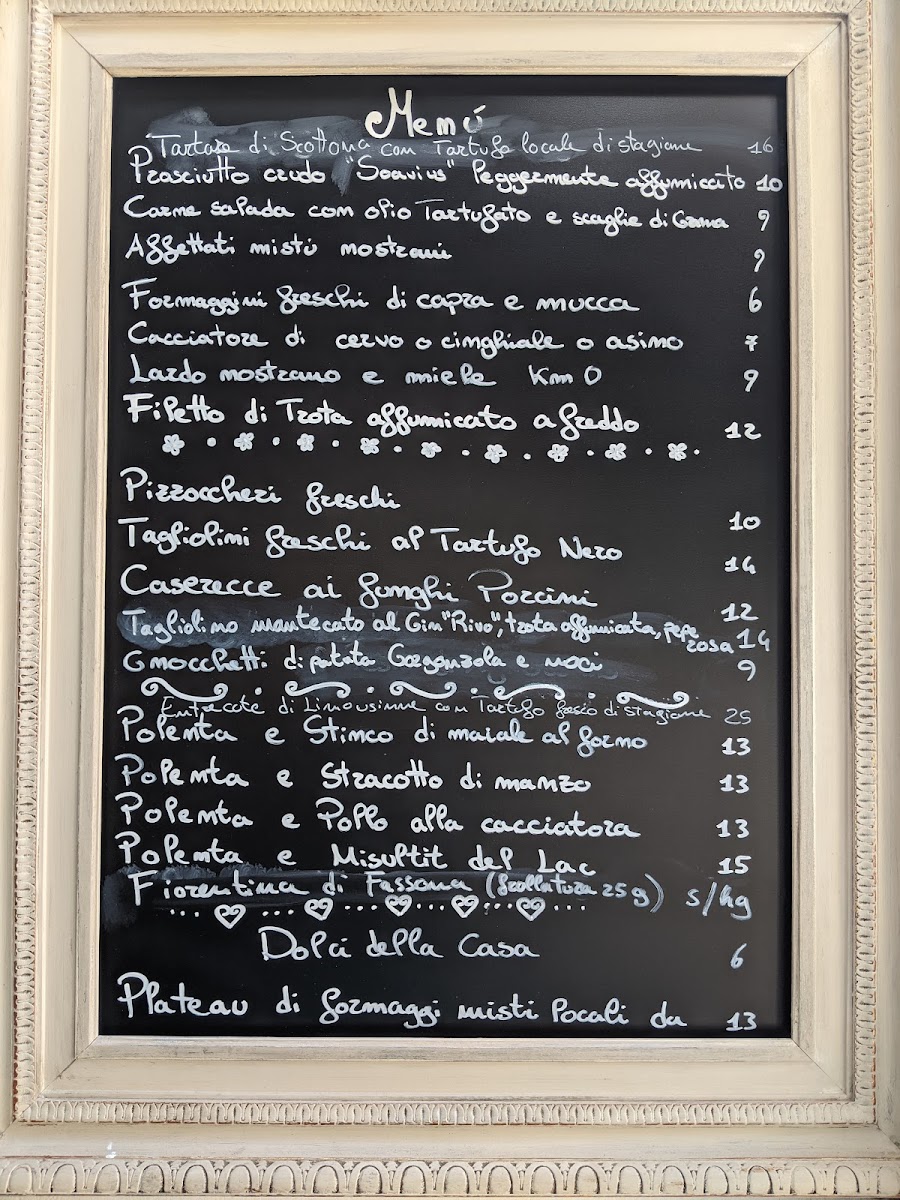 Menú
Tartara di Scottona con Tartufo locale di stagione 16
Prosciutto crudo "Soavius" leggermente affumicato 10
Carne salada con olio Tartufato e scaglie di Grana 9
Affettati misti nostrani 9
Formaggini freschi di capra e mucca 6
Cacciatore di cervo o cinghiale o asino 7
Lardo nostrano e miele Km 0 9
Filetto di Trota affumicato a freddo 12
Pizzoccheri freschi 10
Tagliolini freschi al Tartufo Nero 14
Caserecce ai funghi Porcini 12
Tagliolino mantecato al Gin "Rivo", trota affumicata, pepe rosa 14
Gnocchetti di patata Gorgonzola e noci 9
Entrecote di Limousinne con Tartufo fresco di stagione 25
Polenta e Stinco di maiale al forno 13
Polenta e Stracotto di manzo 13
Polenta e Pollo alla cacciatora 13
Polenta e Misultit del Lac 15
Fiorentina di Fassona (frollatura 25 g) s/kg
Dolci della Casa 6
Plateau di formaggi misti locali da 13